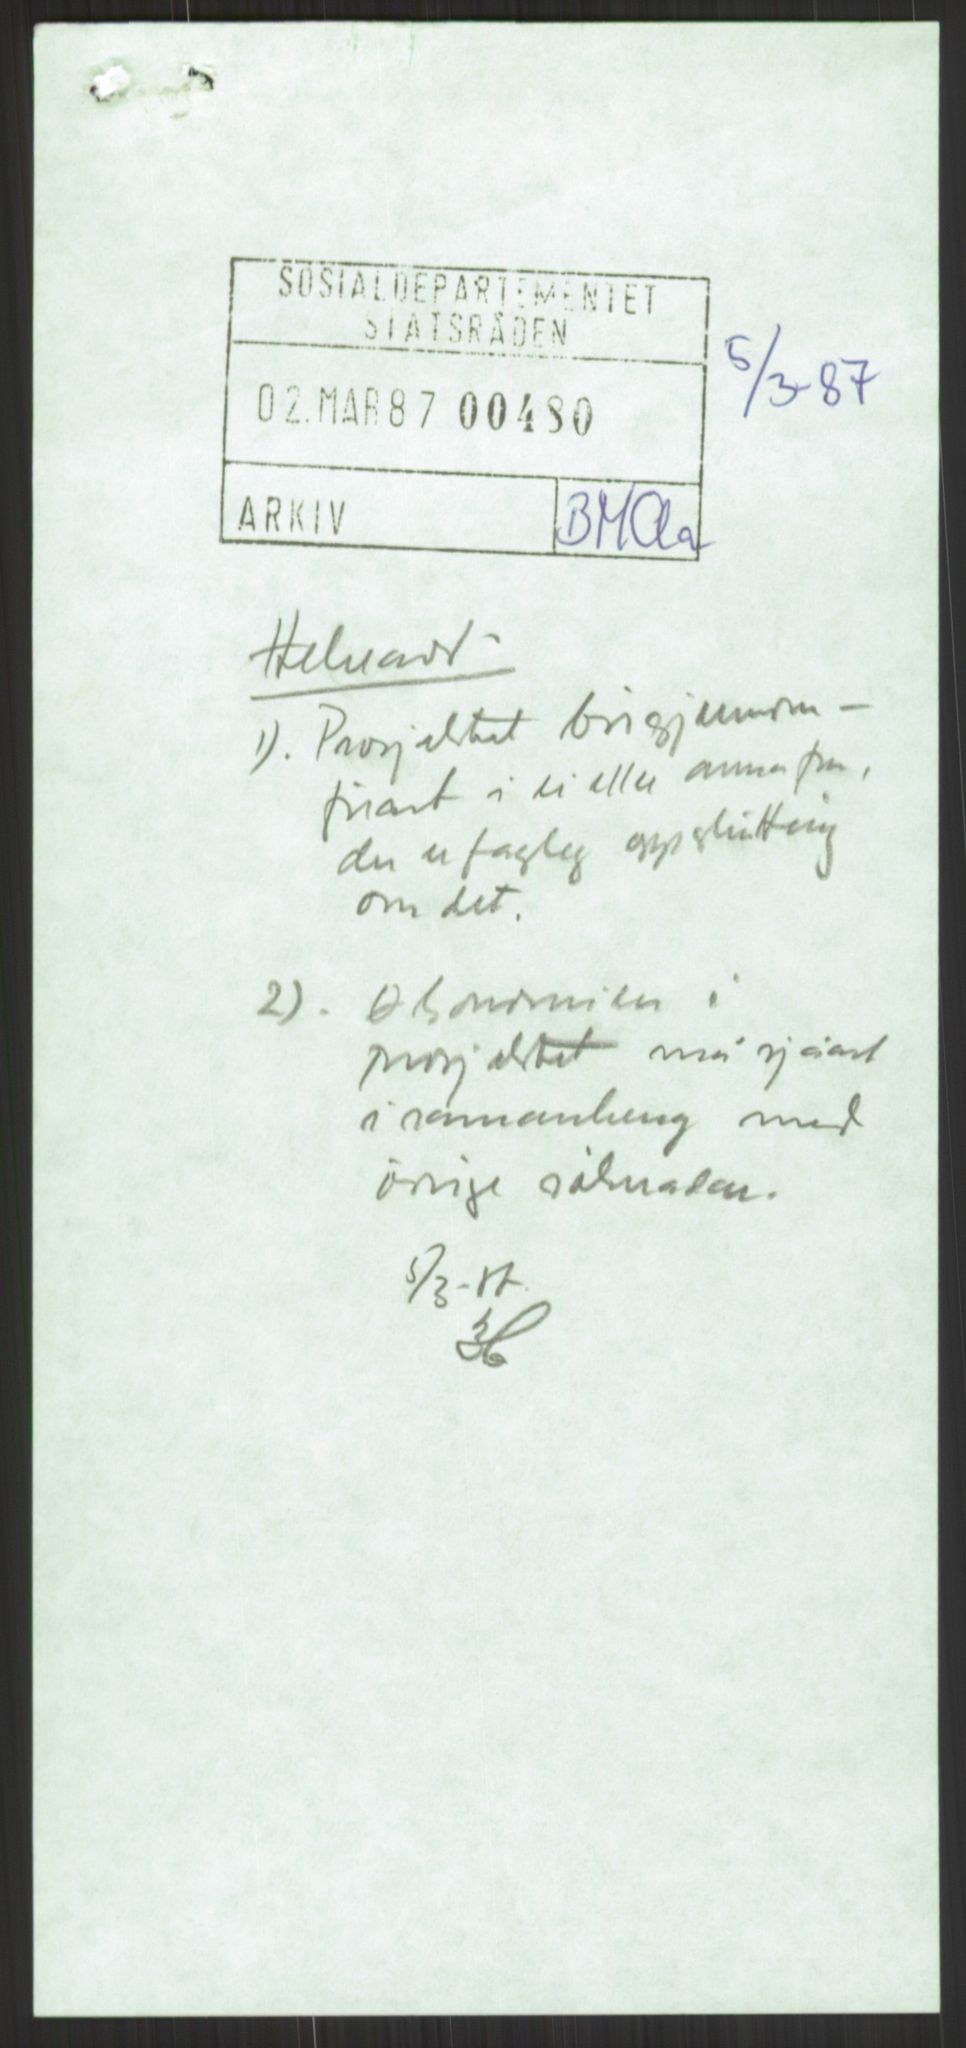 SOSIALDEPARTEMENTET
STATSRÅDEN
5/3-87
02.MAR87 00480
ARKIV
Helseavd.
1). Prosjektet bør gjennom-
førast i ei eller anna form,
der er fagleg oppslutting
om det.
2). Økonomien i
prosjektet må sjåast
i samanheng med
øvrige søknader.
5/3-87.